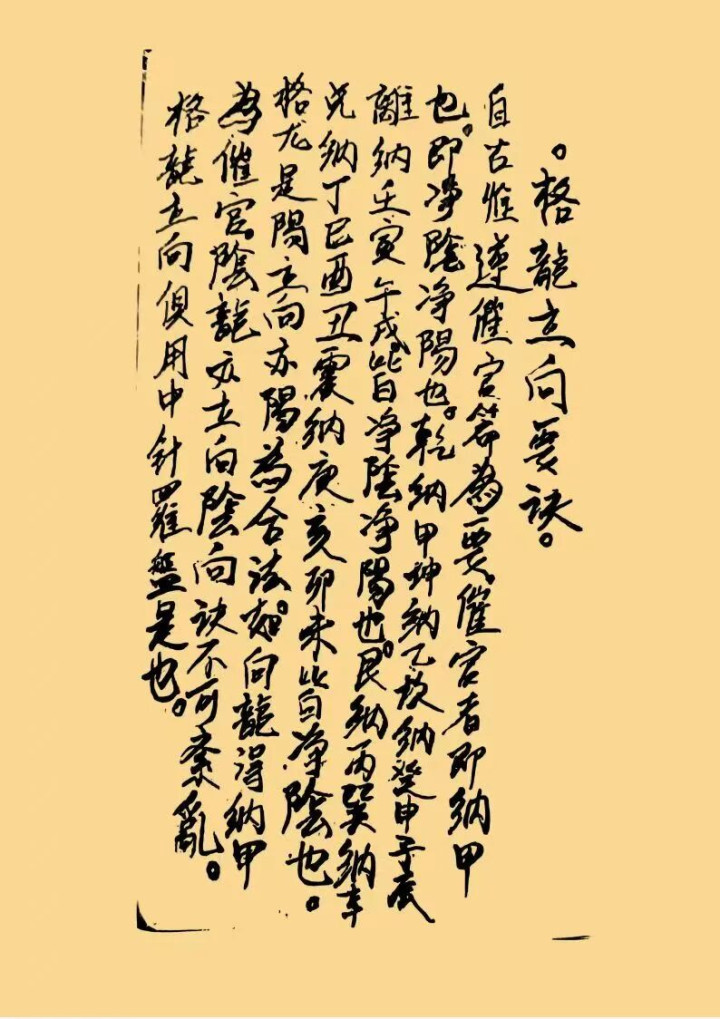 。格龍立向要訣。
自古惟遵催官篇為要。催官者即納甲
也。即净陰净陽也。乾納甲坤納乙坎納癸申子辰
離納壬寅午戌皆净陰净陽也。艮納丙巽納辛
兌納丁巳酉丑震納庚亥卯未皆白净陰也。
格龙是陽立向亦陽為合法。如向龍得納甲
為催官。陰龍亦立向陰向訣不可紊亂。
格龍立向俱用中針羅盤是也。